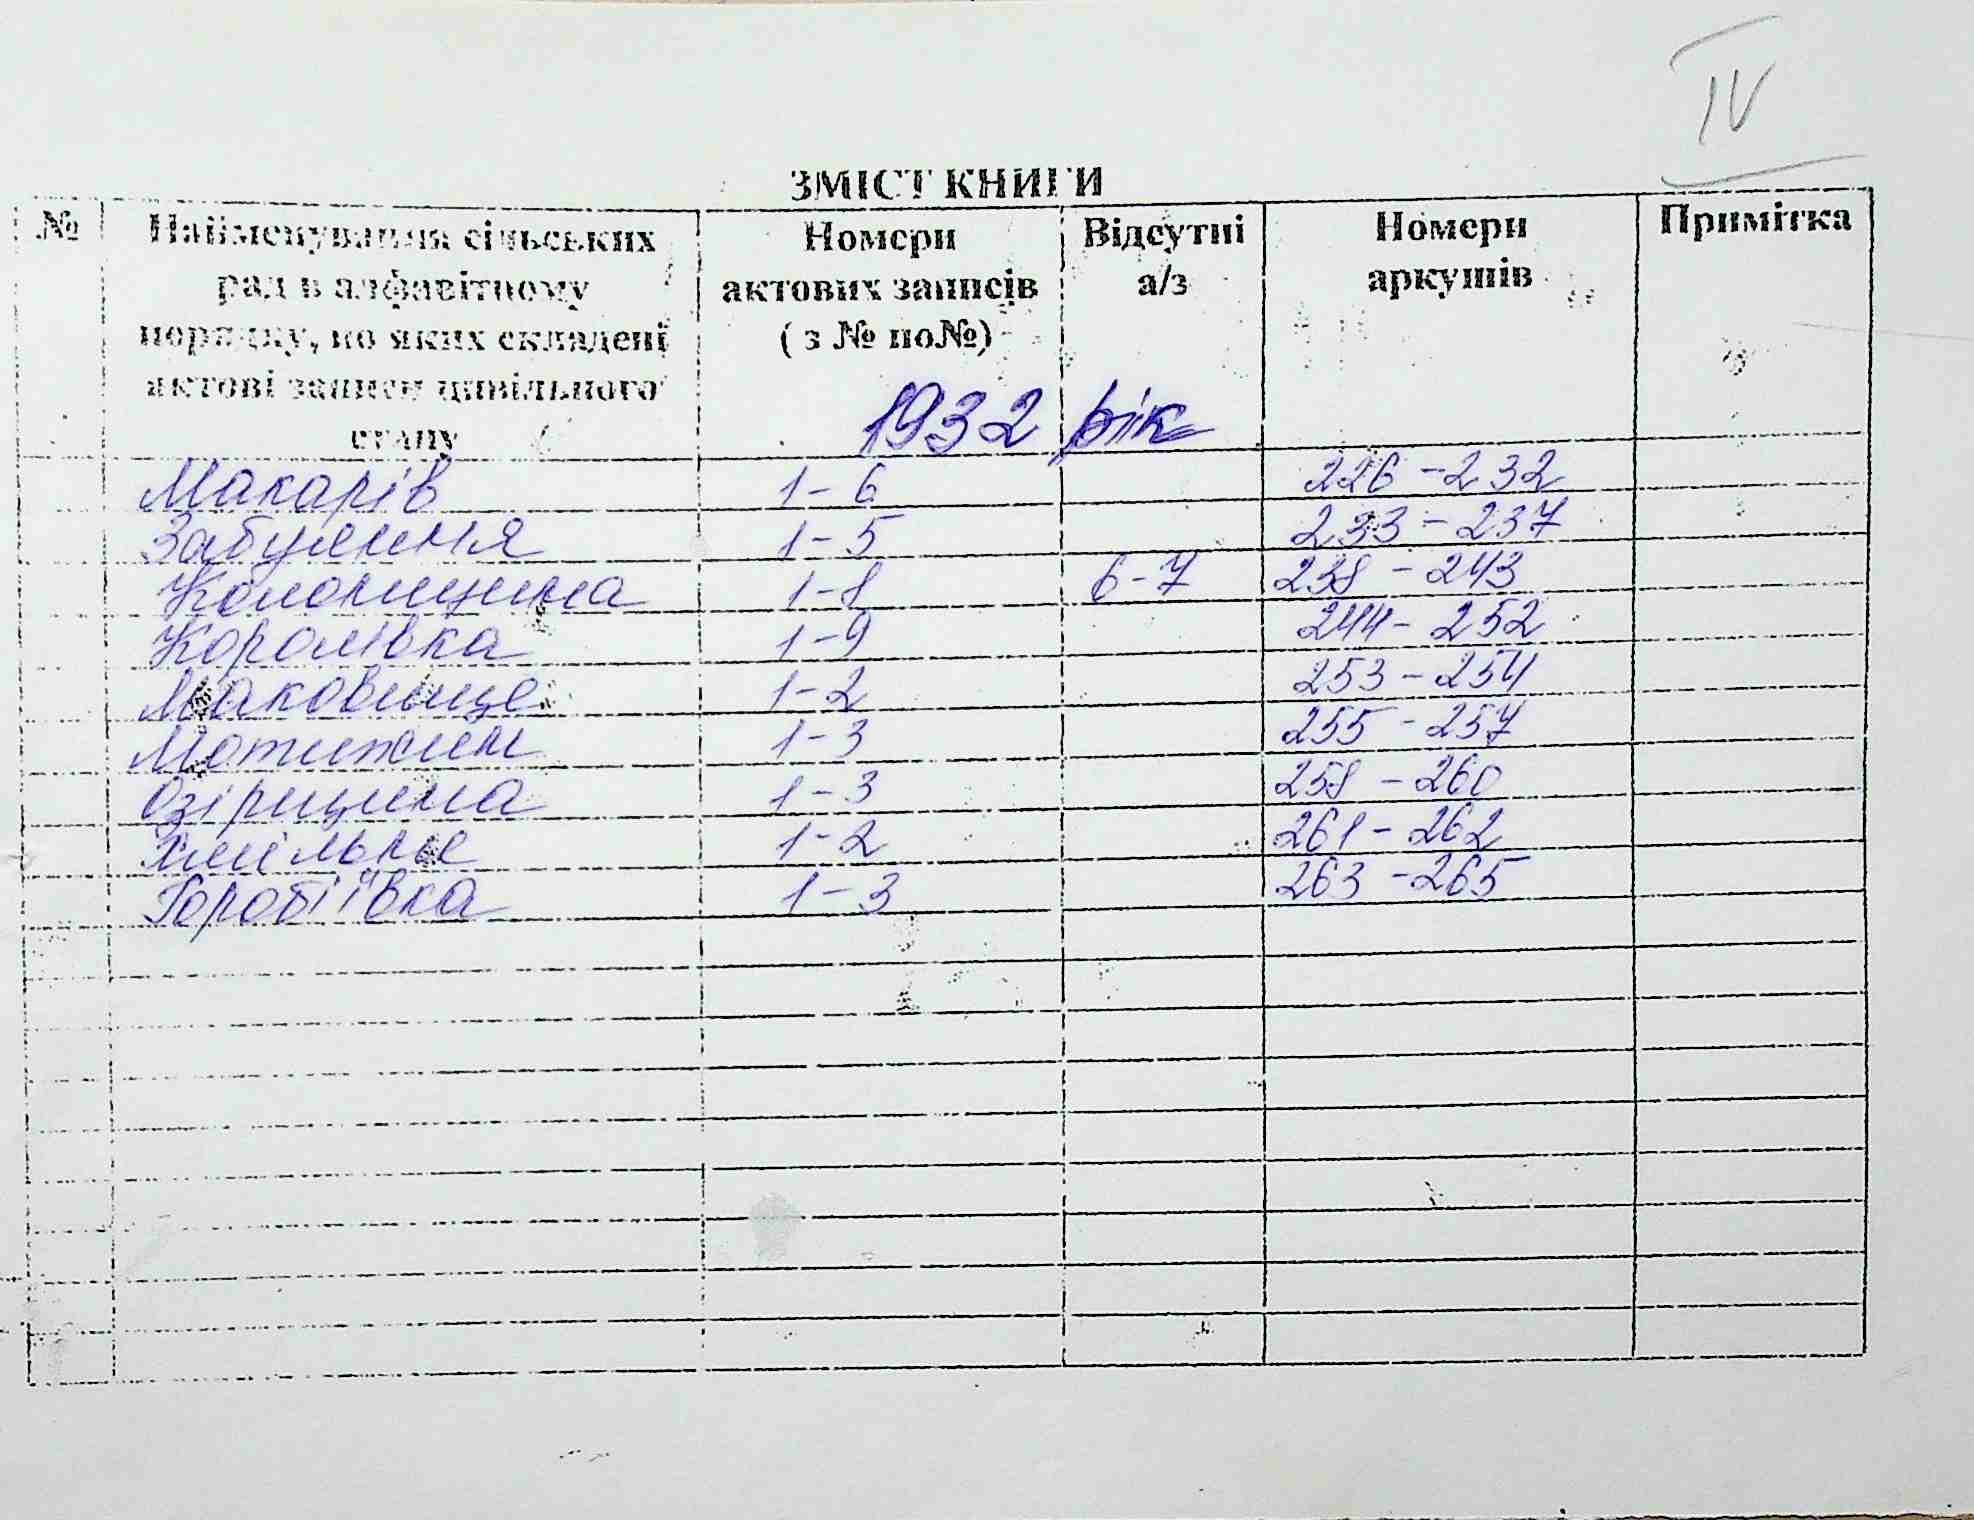 IV
ЗМІСТ КНИГИ
№ Найменування сільських рад в алфавітному порядку, по яких складені актові записи цивільного стану Номери актових записів ( з № по№) Відсутні а/з Номери аркушів Примітка
1932 рік
Макарів 1-6 226-232
Забуяння 1-5 233-237
Колонщина 1-8 6-7 238-243
Королівка 1-9 244-252
Маковище 1-2 253-254
Мотижин 1-3 255-257
Озірщина 1-3 258-260
Хмільне 1-2 261-262
Горобіївка 1-3 263-265